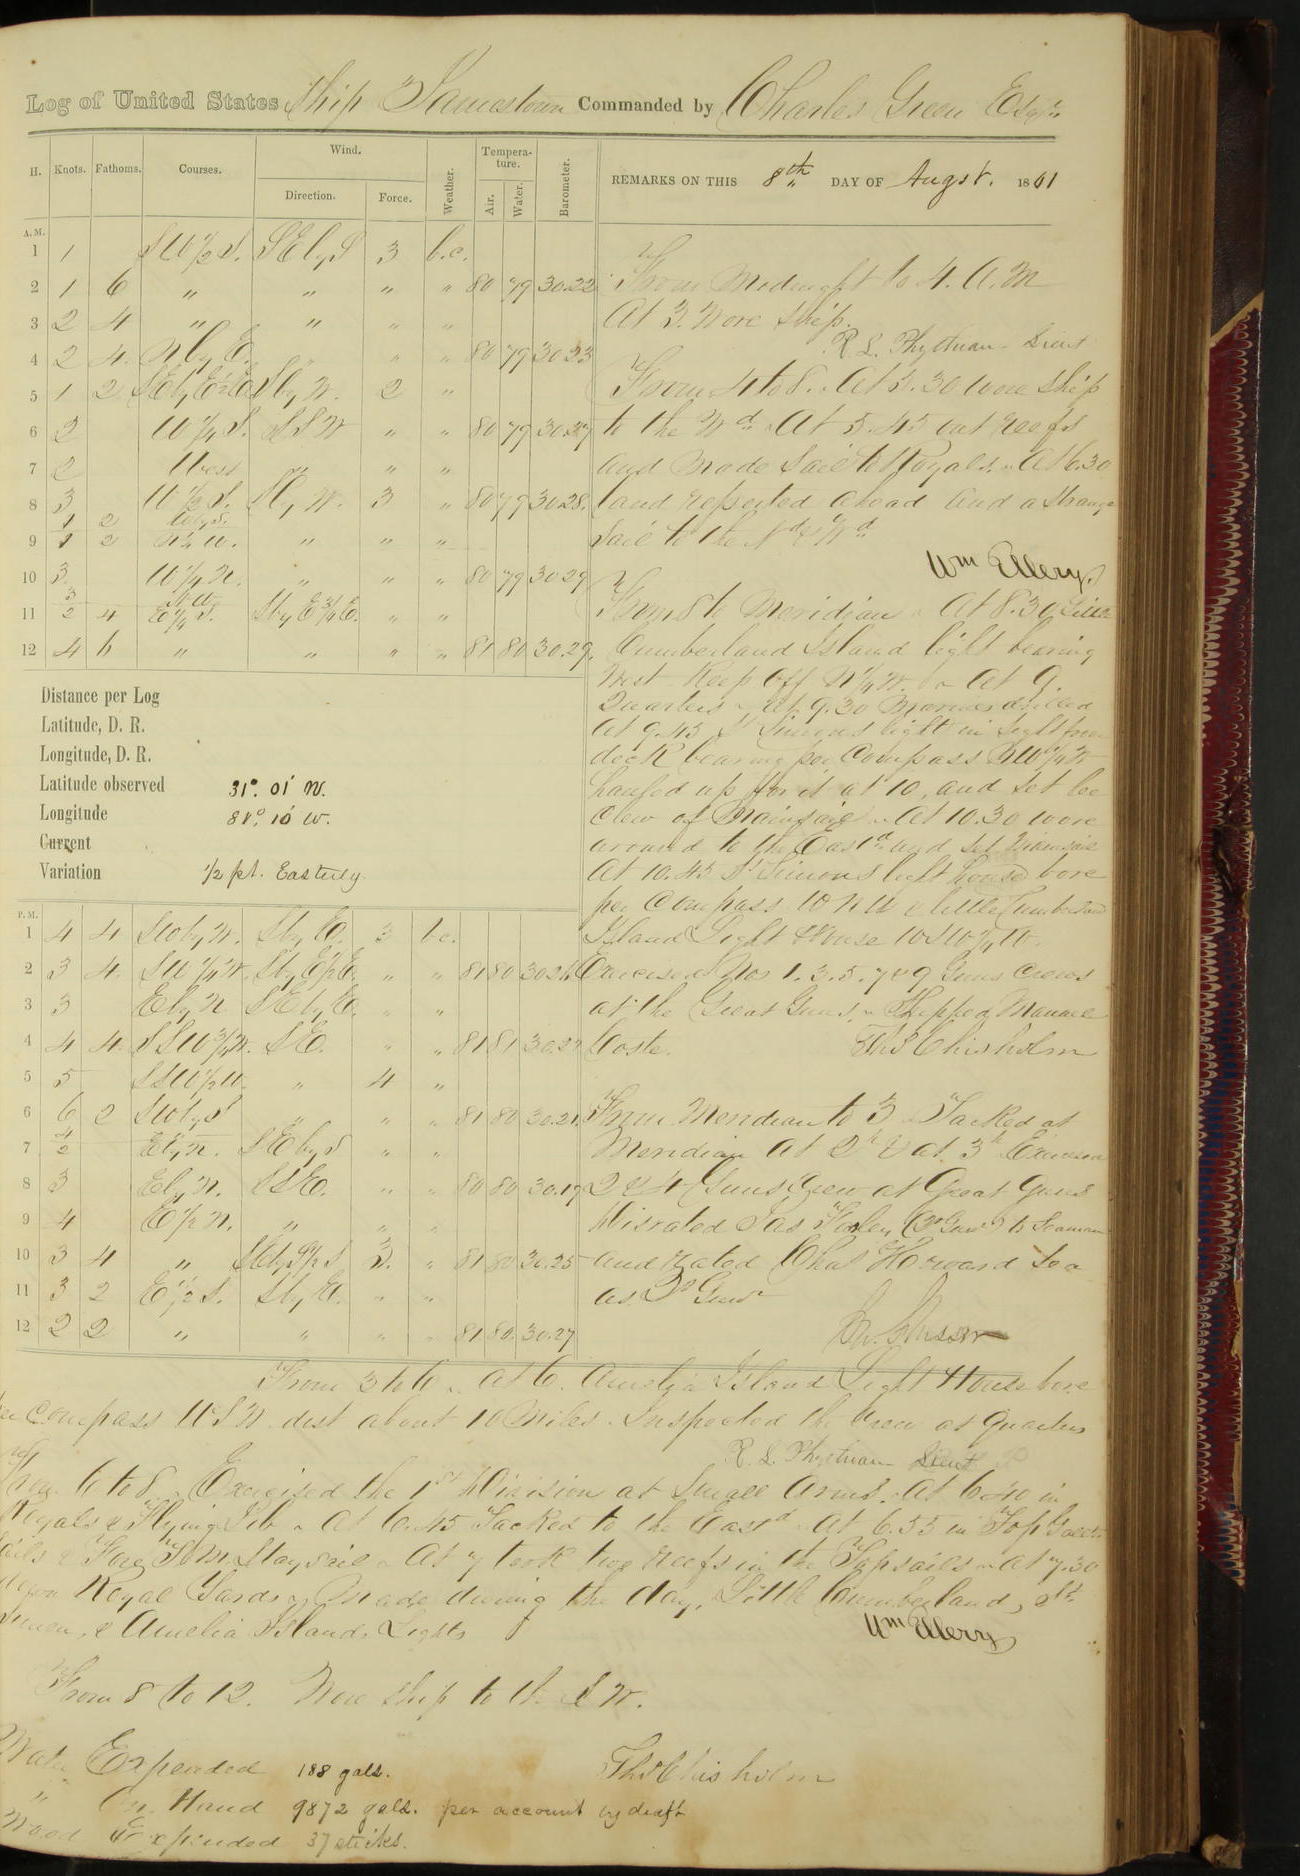 Log of United States Ship Jamestown Commanded by Charles Green Esqr.
H. Knots. Fathoms. Courses. Wind. Direction. Force. Weather. Temperature. Air. Water. Barometer.
REMARKS ON THIS 8th DAY OF Augst. 1861
A.M.
1 1 SW 1/2 S. SE by S 3 b.c.
2 1 6 " " " " 80 79 30.22
3 2 4 " " " "
4 2 4 N by E. " " " 80 79 30 23
5 1 2 S by W. 2 "
6 2 W 1/4 S. SSW " " 80 79 30.27
7 2 West " " "
8 3 W 1/2 S. S by W. 3 " 80 79 30.28.
1 2 W by S.
9 1 2 N 1/4 W. " " "
10 3 W 1/4 N. " " " 80 79 30 29
3
11 2 4 E 1/4 S. S by E 3/4 E. " "
12 4 6 " " " " 81 80 30.29.
From Midnight to 4. A.M
At 3. Wore ship.
R L. Phythian Lieut
From 4 to 8. At 5.30 wore ship
to the Wd. At 5.45 out reefs
and made sail to Royals. At 6.30
land reported ahead and a strange
sail to the Nd & Wd
Wm Ellery.
From 8 to Meridian. At 8.30 Little
Cumberland Island light bearing
West. Keep off N 1/4 W. At 9.
Quarters. At 9.30 Marines drilled
At 9.45 St Simons light in sight from
deck bearing per Compass NW 1/4 W
hauled up for it at 10, and set lee
clew of Mainsail. At 10.30 wore
around to the Eastd and set
At 10.45 St Simons light house bore
per Compass WNW & little Cumberland
Island Light House WSW 1/4 W.
Exercised Nos 1. 3. 5. 7 & 9 Guns Crews
at the Great Guns. Shipped Manuel
Coste. Ths Chisholm
Distance per Log
Latitude, D. R.
Longitude, D. R.
Latitude observed 31°. 01' N.
Longitude 81°. 10' W.
Current
Variation 1/2 pt. Easterly.
P.M.
1 4 4 SW by W. S by E. 3 b.c.
2 3 4. SW 1/4 W. S by E 1/2 E. " " 81 80
3 3 E by N SE by E. " "
4 4 4. SSW 3/4 W. SE. " " 81 81 30.27
5 5 SSW 1/2 W. " 4 "
6 6 2 SW by S " " " 81 80 30.21.
4
7 2 E by N. SE by S " "
8 3 E by N. SSE. " " 80 80 30.19
9 4 E 1/2 N. " " "
10 3 4 " 3. " 81 80 30.25
11 3 2 E 1/2 S. S by E. " "
12 2 2 " " " " 81 80 30.27
From Meridian to 3 Tacked at
Meridian at 2h & at 3h Exercised
2 & 4 Guns Crew at Great Guns
Disrated Jas to Seaman
and rated Chas Howard Sea
as
From 3 to 6. At 6. Amelia Island Light House bore
per Compass WSW. dist about 10 Miles. Inspected the Crew at Quarters
R. L. Phythian Lieut
From 6 to 8. Exercised the 1st Division at Small Arms. At 6.40 in
Royals & Flying Jib. At 6.45 Tacked to the Eastd. At 6.55 in Top Gallt
sails & Fore T.M. Staysail. At 7 took two reefs in the Topsails. At 7.30
down Royal Yards. Made during the day, Little Cumberland, St.
Simon, & Amelia Islands Lights
Wm Ellery
From 8 to 12. Wore ship to the S W.
Ths Chisholm
Water Expended 188 galls.
" On Hand 9872 galls. per account by draft
Wood Expended 37 sticks.